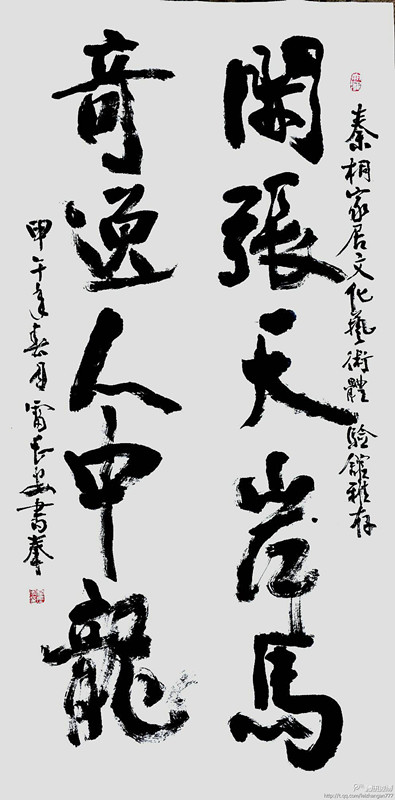 秦相家居文化藝術體驗館雅存
開張天岸馬
奇逸人中龍
甲午年春月雷长安書奉